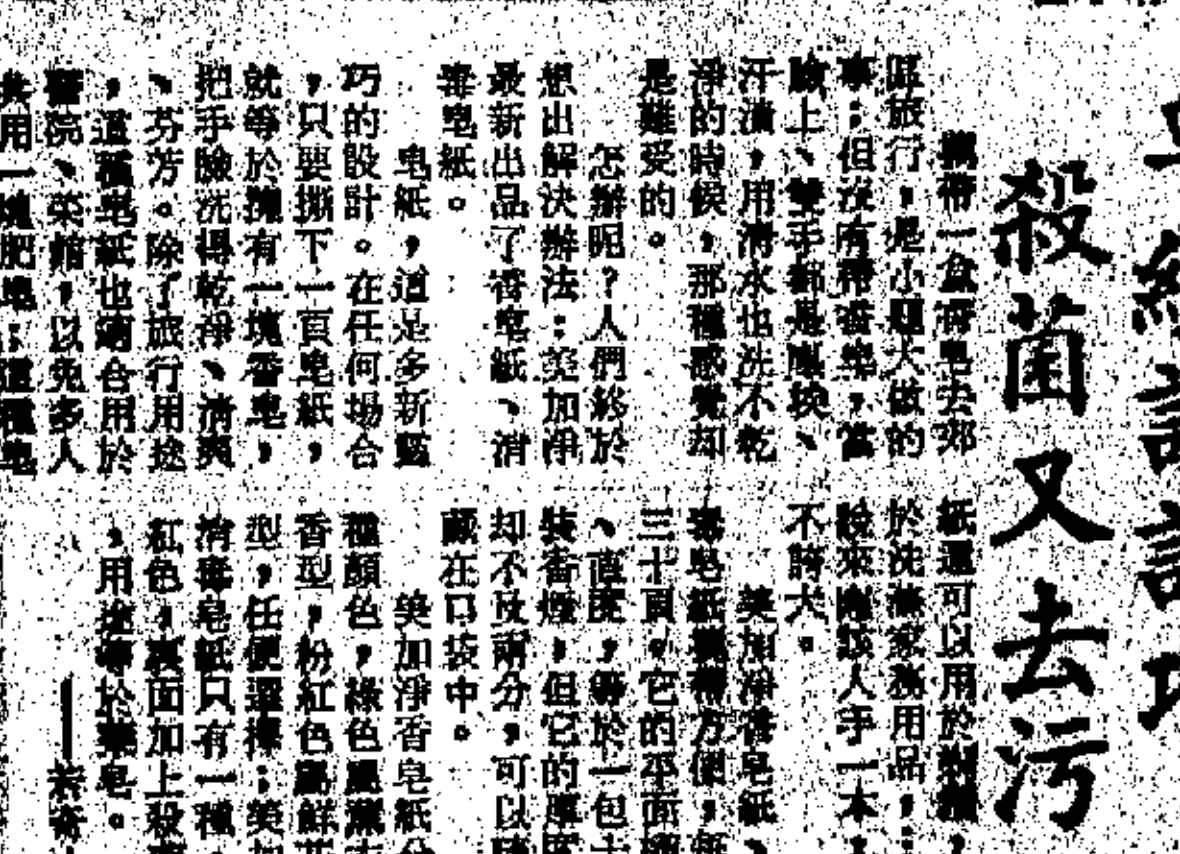 殺菌又去污
攜帶一盒香皂去郊
區旅行，是小題大做的
事；但沒有帶香皂，當
臉上、雙手都是塵埃、
汗漬，用清水也洗不乾
淨的時候，那種感覺却
是難受的。
怎辦呢？人們終於
想出解決辦法：美加淨
最新出品了香皂紙、消
毒皂紙。
皂紙，這是多新藍
巧的設計。在任何場合
，只要撕下一頁皂紙，
就等於擁有一塊香皂，
把手臉洗得乾淨、清爽
、芬芳。除了旅行用途
，這種皂紙也適合用於
醫院、菜館，以免多人
共用一塊肥皂；這種皂
紙還可以用於
於洗滌家務用品，
說來應該人手一本，
不誇大。
美加淨香皂紙、
毒皂紙攜帶方便，每
三十頁。它的平面
、直度，等於一包
裝香煙，但它的厚度
却不及兩分，可以
藏在口袋中。
美加淨香皂紙分
種顏色，綠色屬
香型，粉紅色屬鮮花
型，任便選擇；美加
消毒皂紙只有一種
紅色，裏面加上殺
，用途等於藥皂。